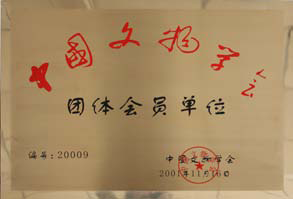 中國文物学会
团体会员单位
编号:20009
中国文物学会
2001年11月16日